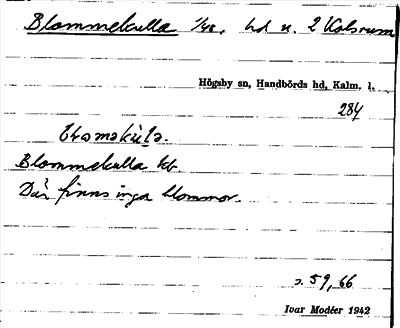 Blommekulla 1/48, hd u. 2 Kolsrum
Högsby sn, Handbörds hd, Kalm. l.
284
Blommekulla tt.
Där finns inga blommor.
s. 59, 66
Ivar Modéer 1942